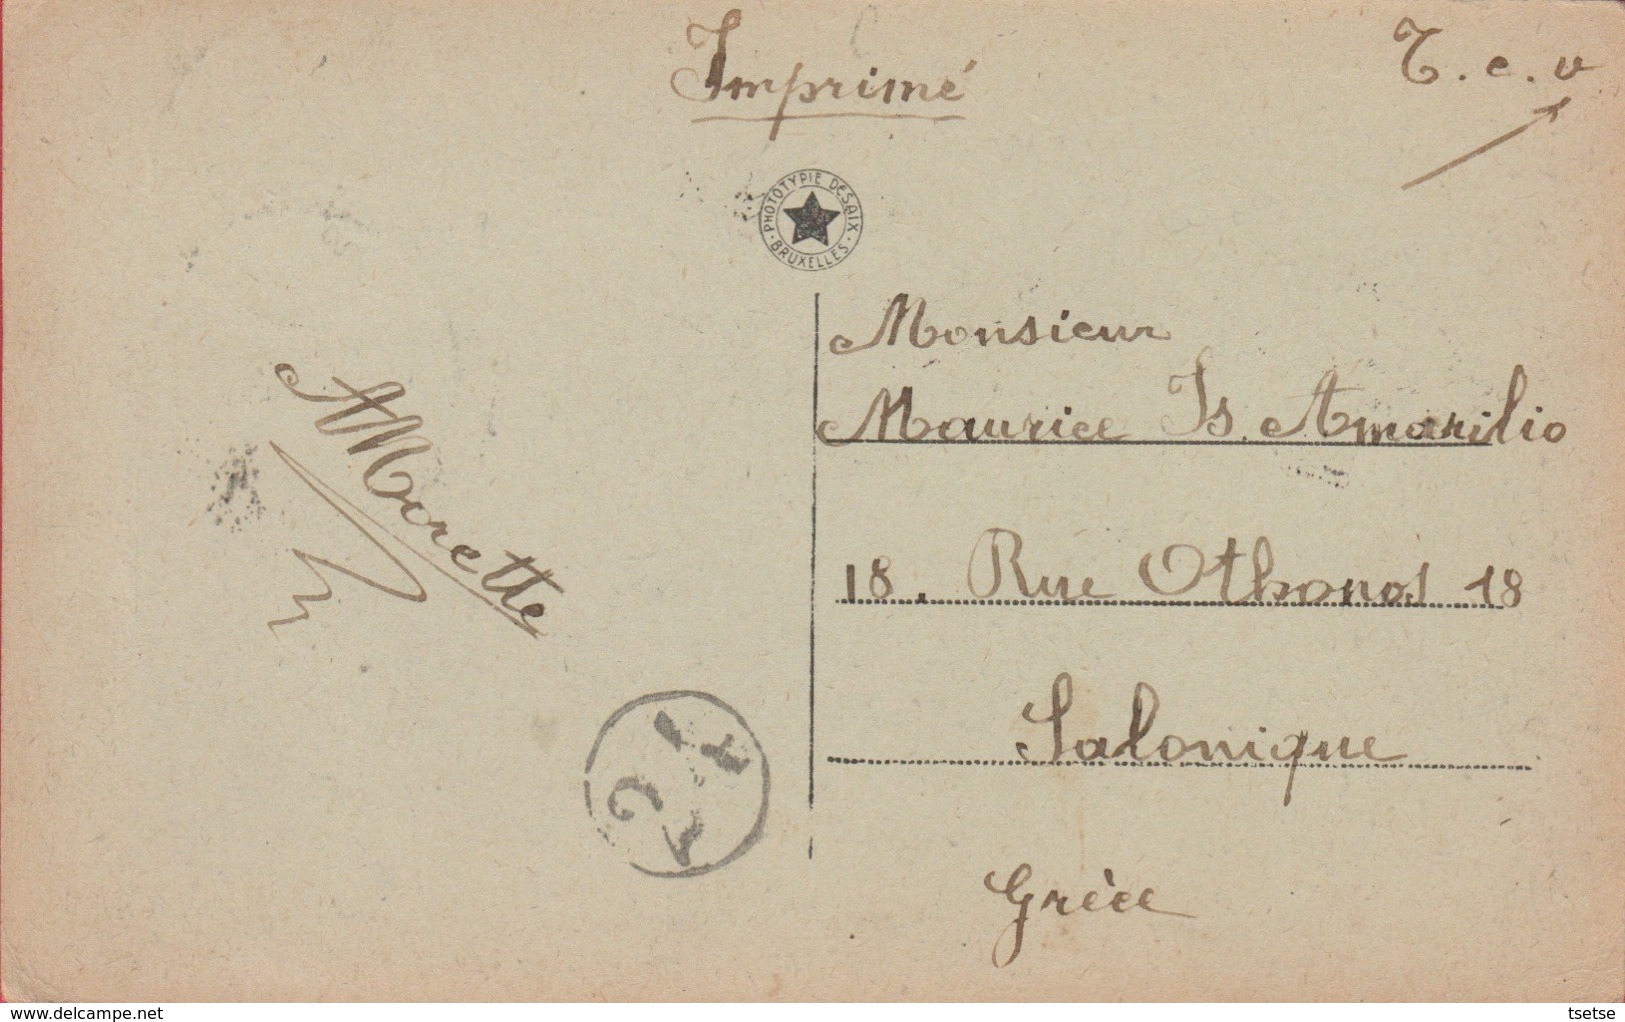 Imprimé
T. c. v
PHOTOTYPIE DéSAIX
BRUXELLES
Monsieur
Maurice Is. Amarilio
18. Rue Othonos 18
Salonique
Grèce
AMorette
www.delcampe.net
tsetse